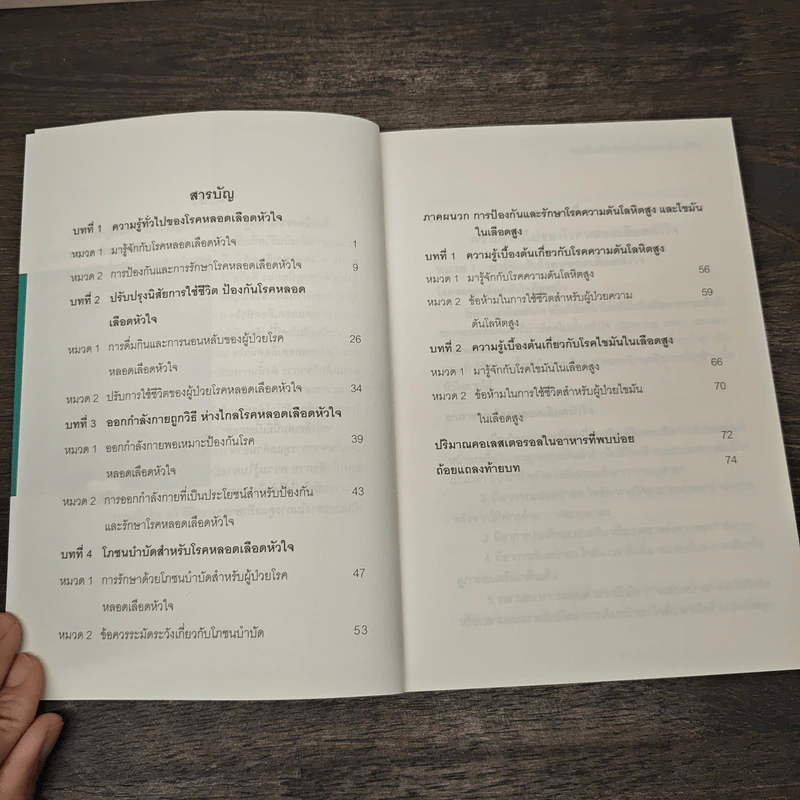 สารบัญ
บทที่ 1 ความรู้ทั่วไปของโรคหลอดเลือดหัวใจ
หมวด 1 มารู้จักกับโรคหลอดเลือดหัวใจ 1
หมวด 2 การป้องกันและการรักษาโรคหลอดเลือดหัวใจ 9
บทที่ 2 ปรับปรุงนิสัยการใช้ชีวิต ป้องกันโรคหลอด
เลือดหัวใจ
หมวด 1 การดื่มกินและการนอนหลับของผู้ป่วยโรค 26
หลอดเลือดหัวใจ
หมวด 2 ปรับการใช้ชีวิตของผู้ป่วยโรคหลอดเลือดหัวใจ 34
บทที่ 3 ออกกำลังกายถูกวิธี ห่างไกลโรคหลอดเลือดหัวใจ
หมวด 1 ออกกำลังกายพอเหมาะป้องกันโรค 39
หลอดเลือดหัวใจ
หมวด 2 การออกกำลังกายที่เป็นประโยชน์สำหรับป้องกัน 43
และรักษาโรคหลอดเลือดหัวใจ
บทที่ 4 โภชนบำบัดสำหรับโรคหลอดเลือดหัวใจ
หมวด 1 การรักษาด้วยโภชนบำบัดสำหรับผู้ป่วยโรค 47
หลอดเลือดหัวใจ
หมวด 2 ข้อควรระมัดระวังเกี่ยวกับโภชนบำบัด 53
ภาคผนวก การป้องกันและรักษาโรคความดันโลหิตสูง และไขมัน
ในเลือดสูง
บทที่ 1 ความรู้เบื้องต้นเกี่ยวกับโรคความดันโลหิตสูง
หมวด 1 มารู้จักกับโรคความดันโลหิตสูง 56
หมวด 2 ข้อห้ามในการใช้ชีวิตสำหรับผู้ป่วยความ 59
ดันโลหิตสูง
บทที่ 2 ความรู้เบื้องต้นเกี่ยวกับโรคไขมันในเลือดสูง
หมวด 1 มารู้จักกับโรคไขมันในเลือดสูง 66
หมวด 2 ข้อห้ามในการใช้ชีวิตสำหรับผู้ป่วยไขมัน 70
ในเลือดสูง
ปริมาณคอเลสเตอรอลในอาหารที่พบบ่อย 72
ถ้อยแถลงท้ายบท 74